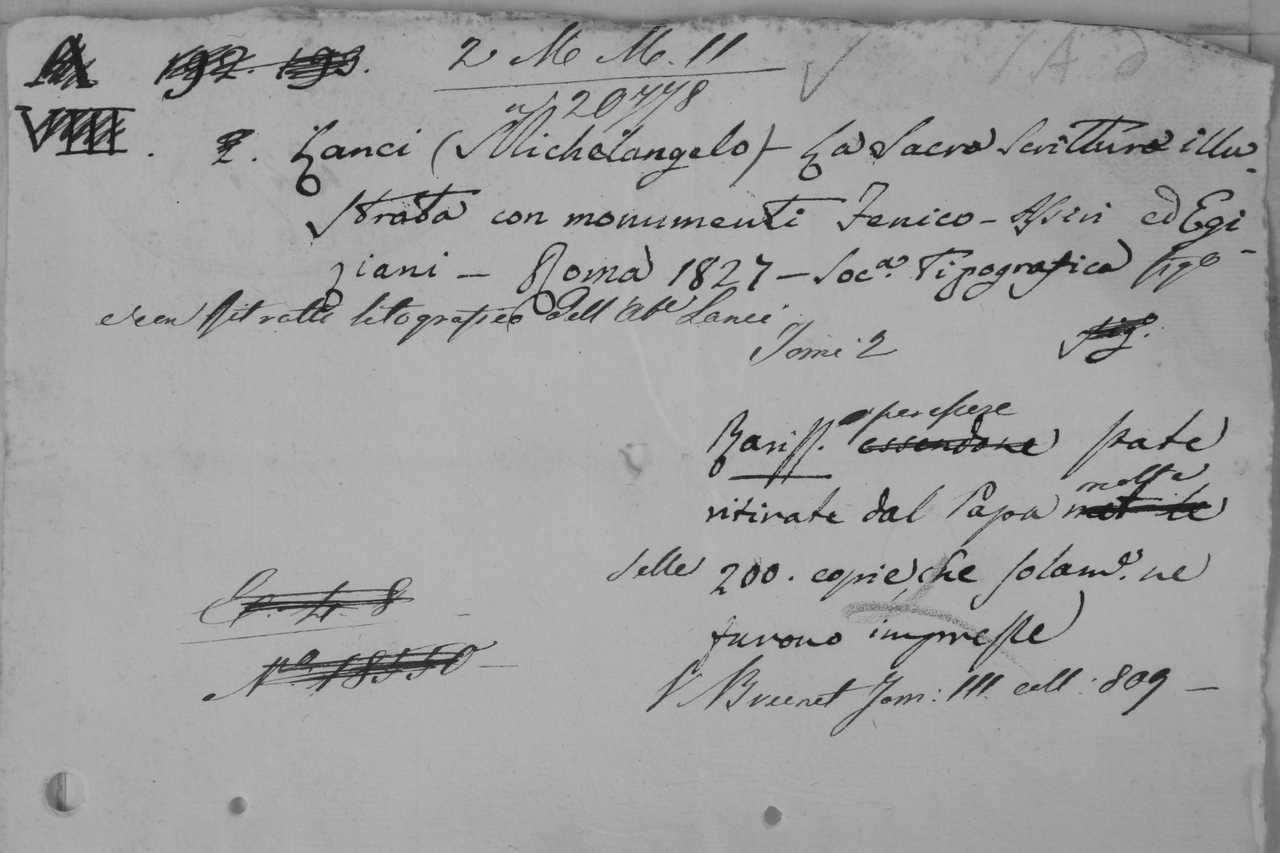 A 192. 193. 2 M M. 11
n° 20778
VIII. 2. Lanci (Michelangelo) – La Sacra Scrittura illu-
strata con monumenti Fenico-Assiri ed Egi-
ziani – Roma 1827 – Soc.a Tipografica fig.o
e con Ritratto litografico dell'Abe Lanci
Tomi 2 fig.o
Rariss. per essere essendone state
ritirate dal Papa molte
delle 200. copie, che solam.e ne
furono impresse
C. 4. 8
N.o 18550
V Brunet Tom: III. coll: 809 –